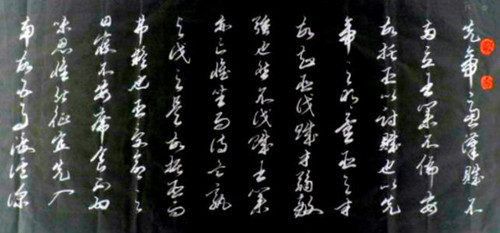 先帝慮漢賊不
兩立王業不偏安
故托臣以討賊也以先
帝之明量臣之才
故知臣伐賊才弱敵
強也然不伐賊王業
亦亡惟坐而待亡孰
與伐之是故托臣而
弗疑也臣受命之
日寢不安席食不甘
味思惟北征宜先入
南故五月渡瀘深